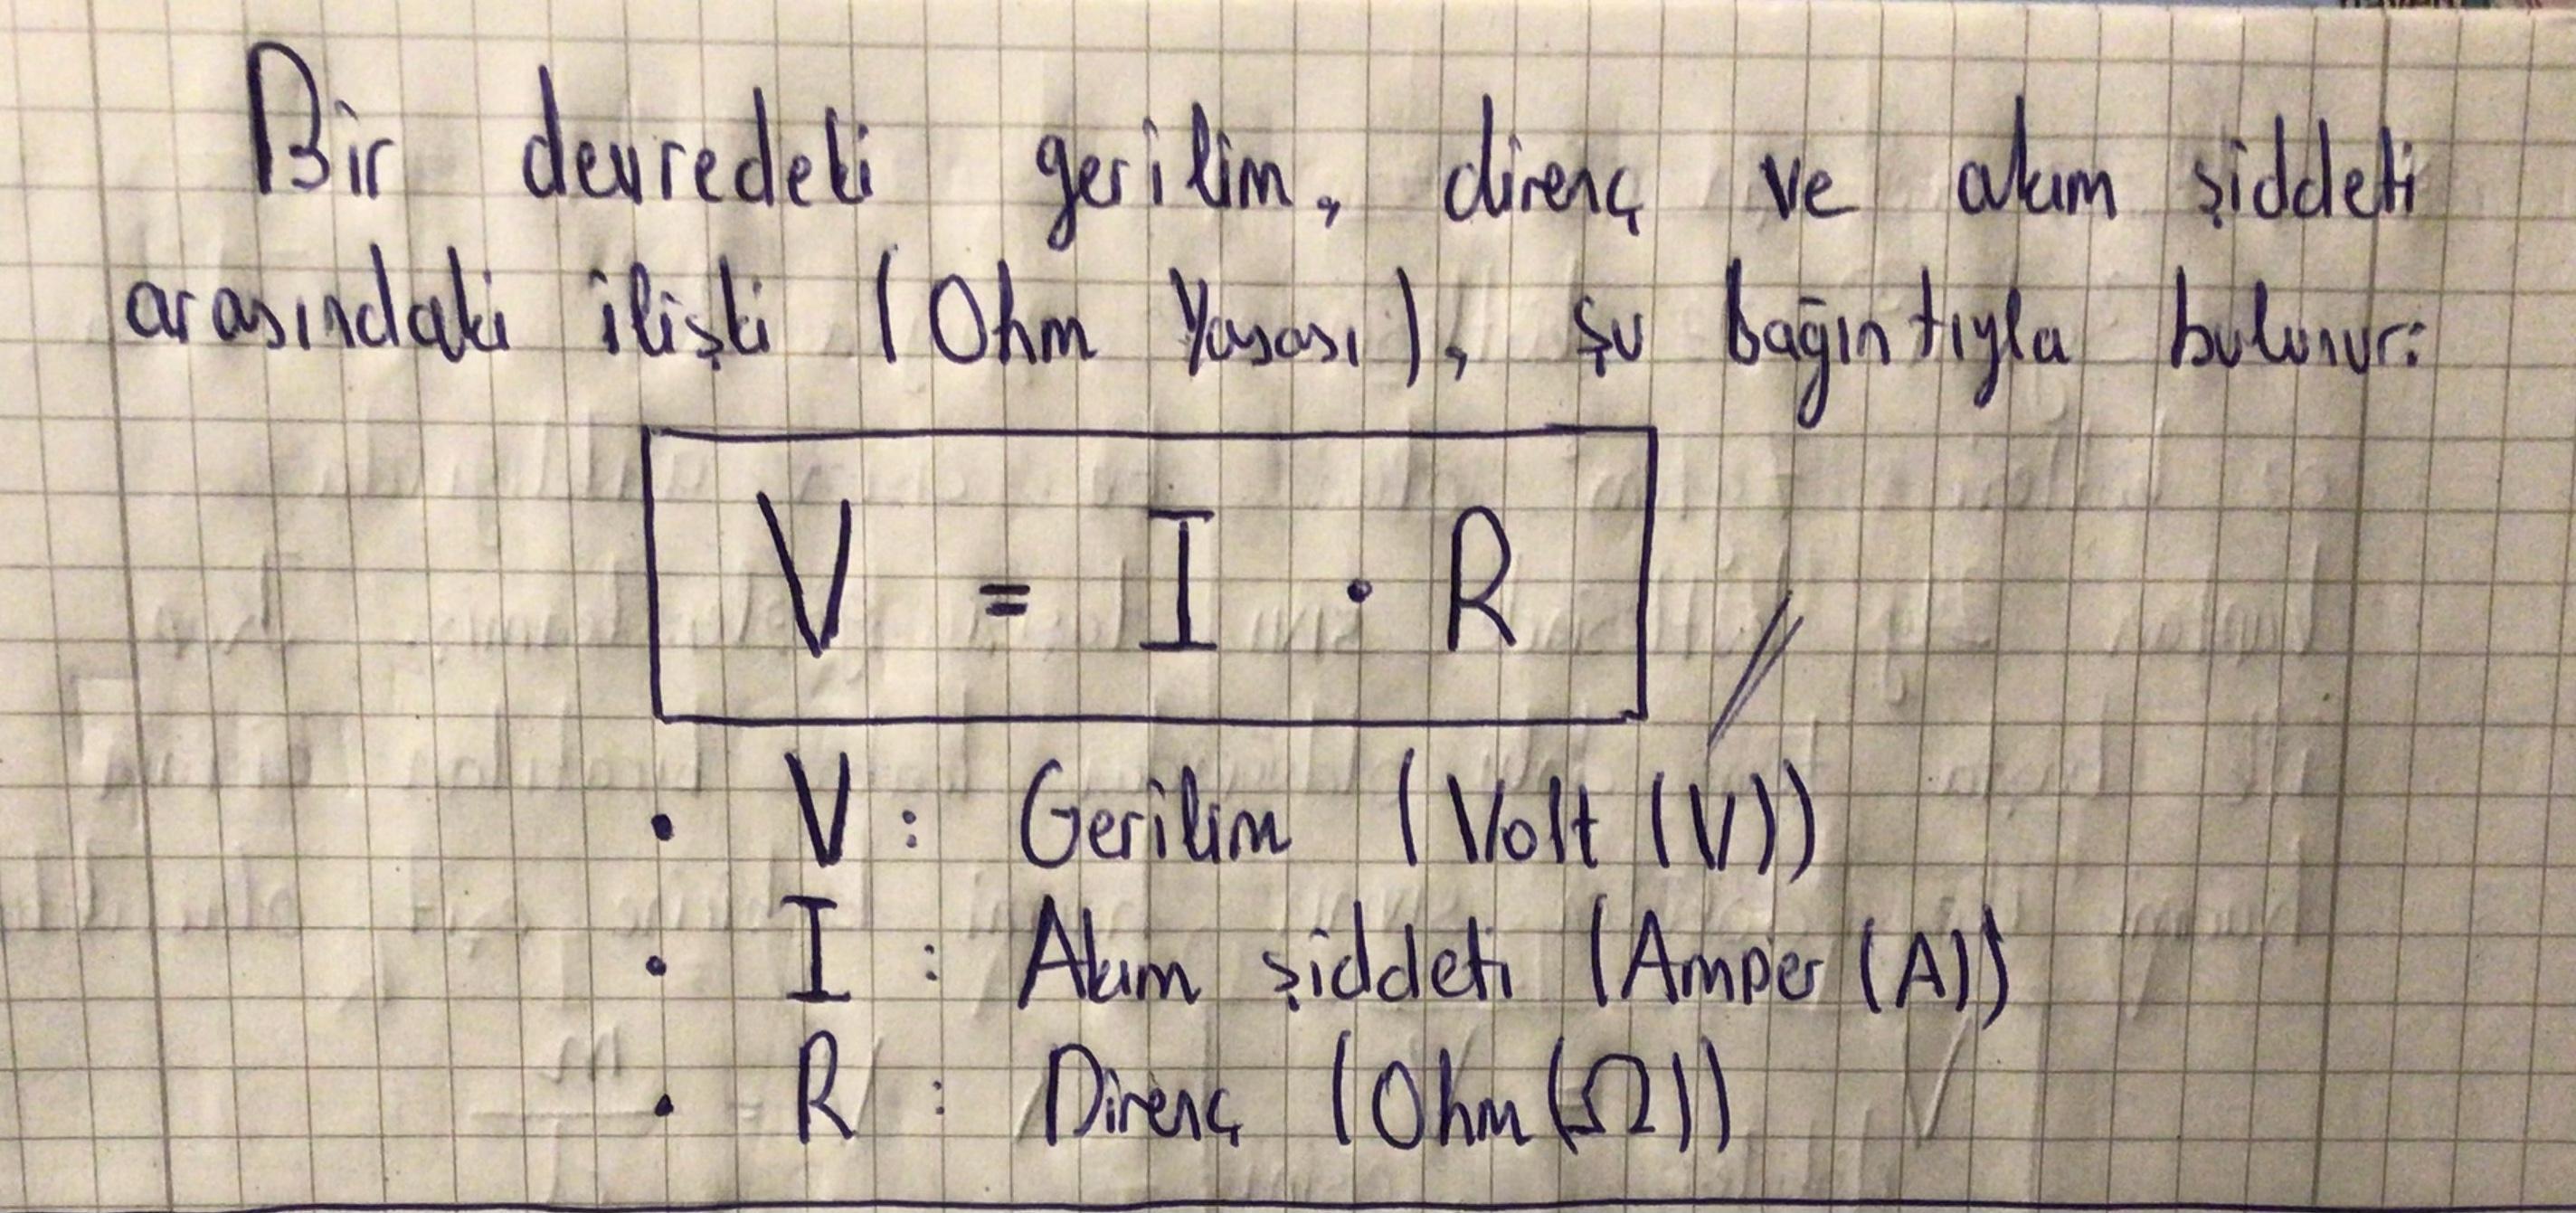 Bir devredeki gerilim, direnç ve akım şiddeti
arasındaki ilişki (Ohm Yasası), şu bağıntıyla bulunur:
V = I · R
• V : Gerilim (Volt (V))
• I : Akım şiddeti (Amper (A))
• R : Direnç (Ohm (Ω))